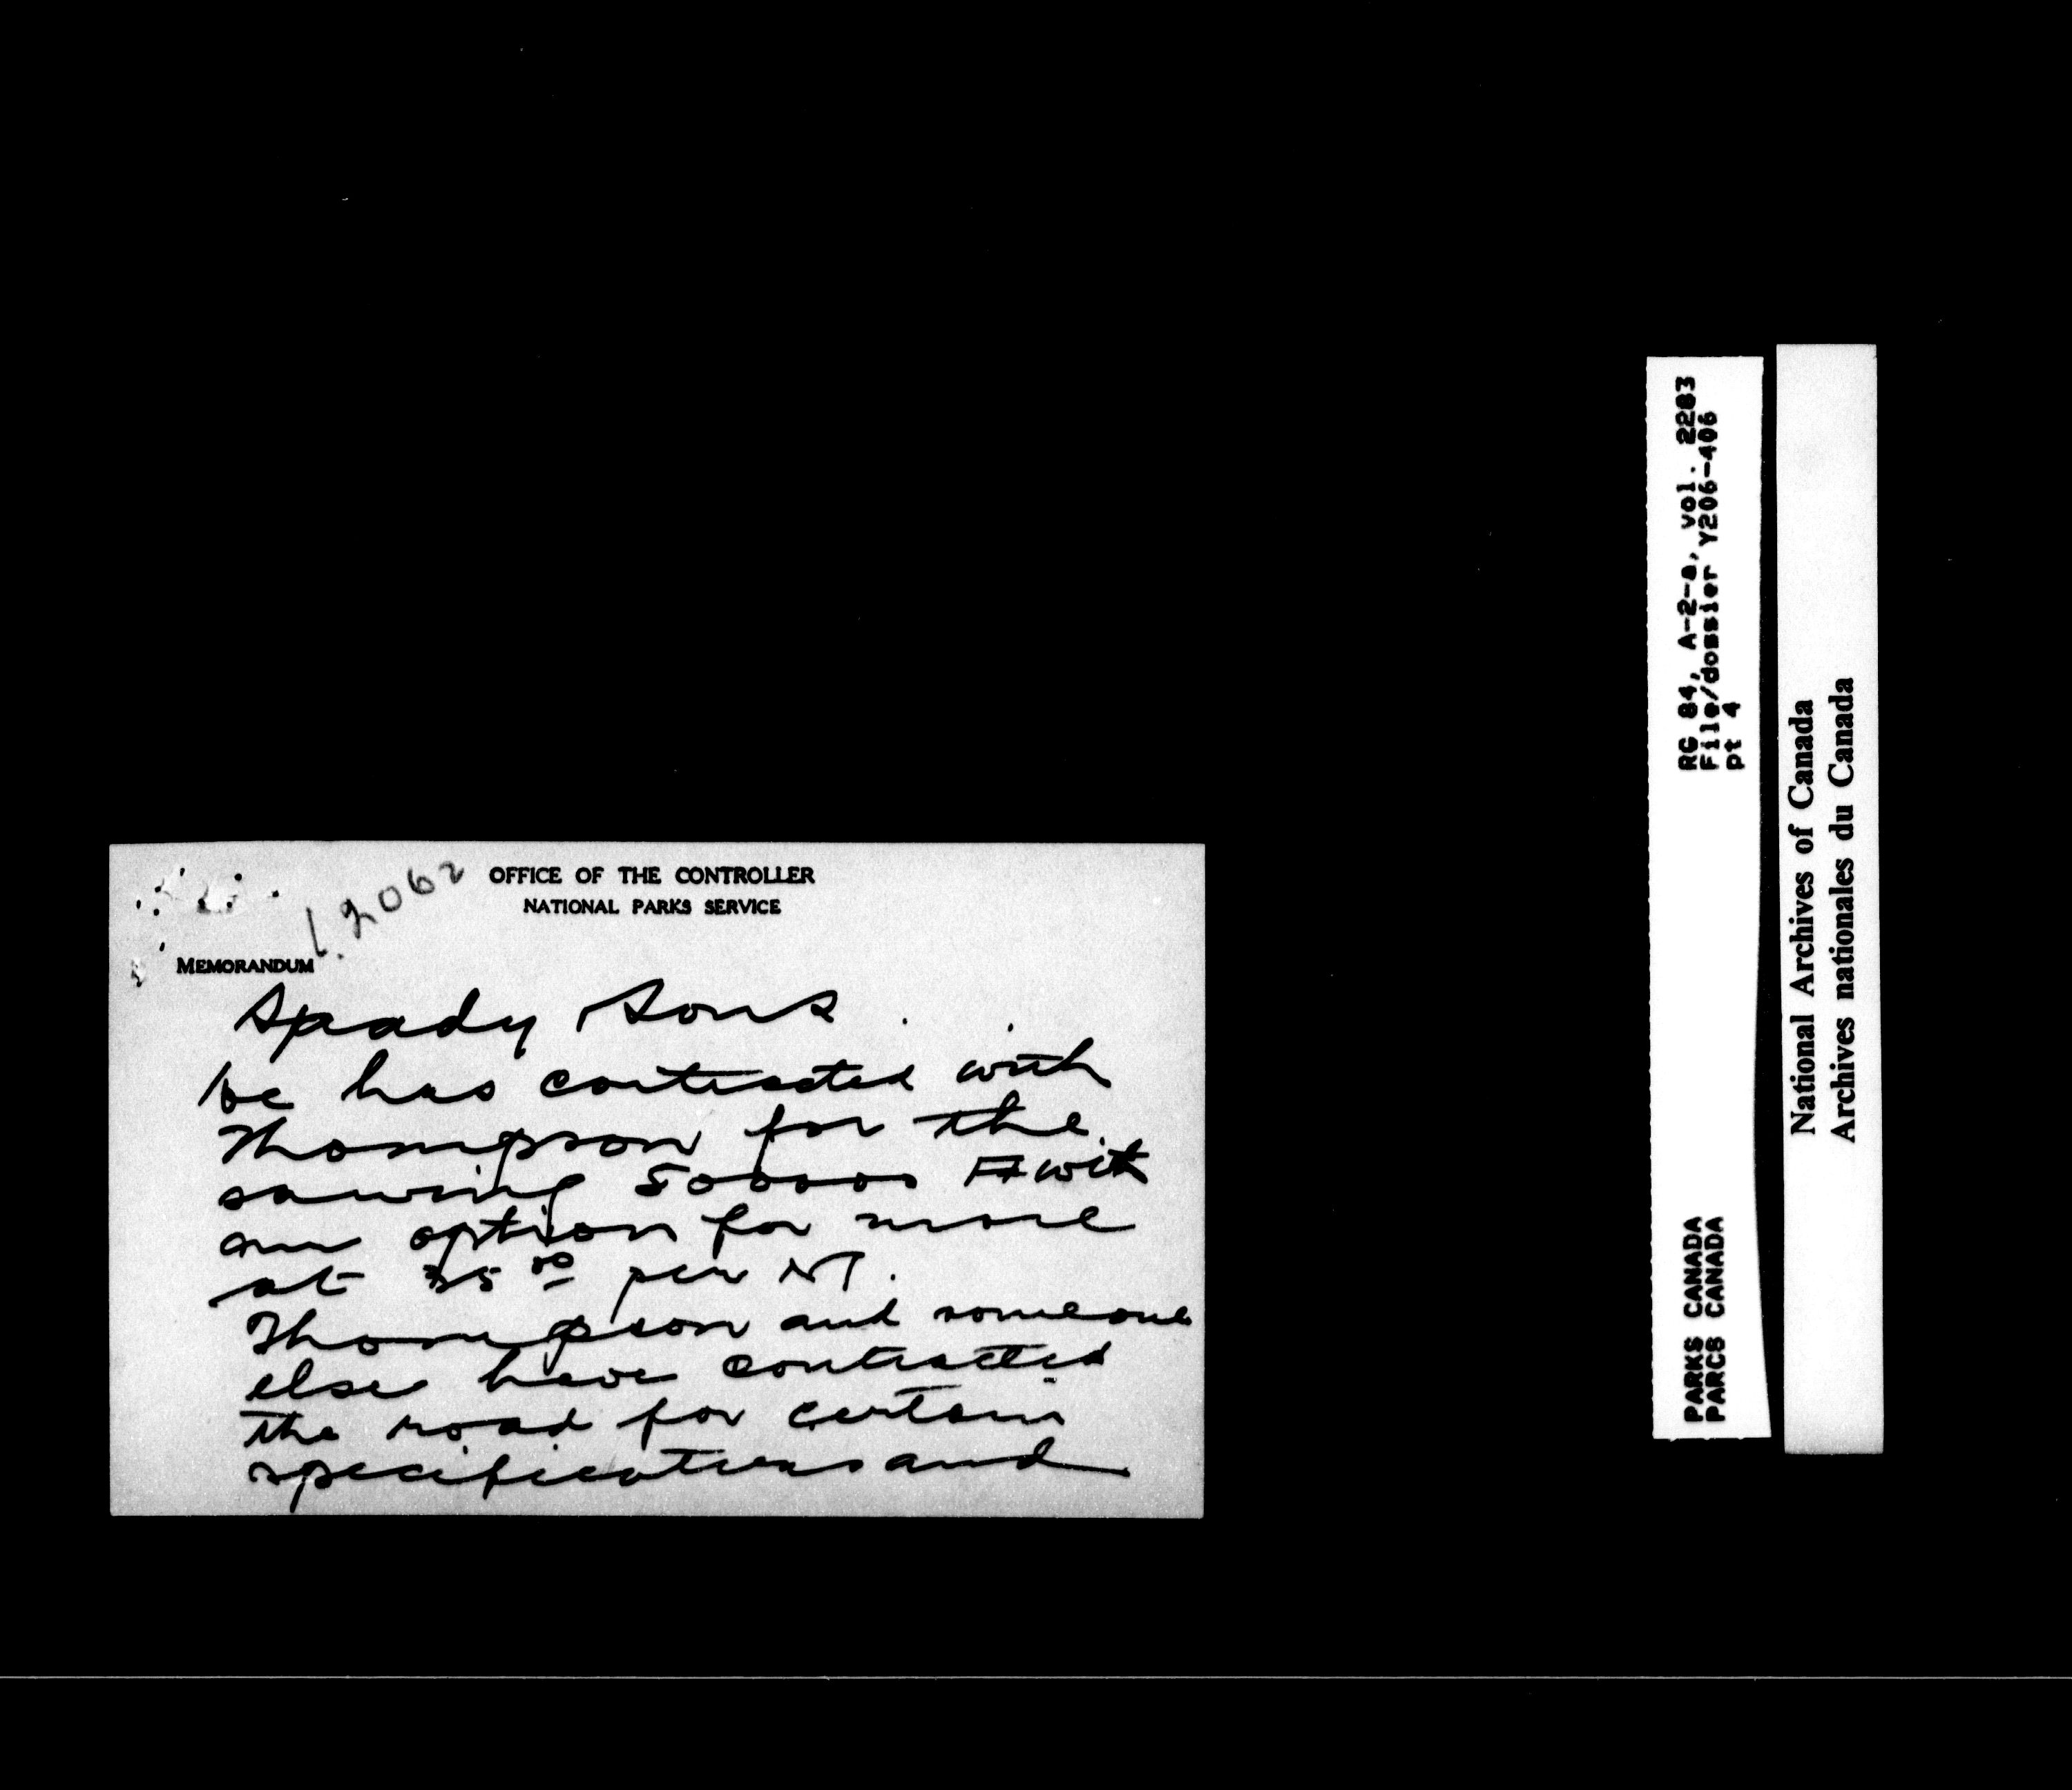 OFFICE OF THE CONTROLLER
NATIONAL PARKS SERVICE
L.2062
MEMORANDUM
Spady Sons
he has contracted with
Thompson for the
sawing 500000 Ft with
an option for more
at 35 00 per M.
Thompson and someone
else have contracted
the road for certain
specifications and
RG 84, A-2-a, vol. 2283
File/dossier Y206-406
pt 4
PARKS CANADA
PARCS CANADA
National Archives of Canada
Archives nationales du Canada